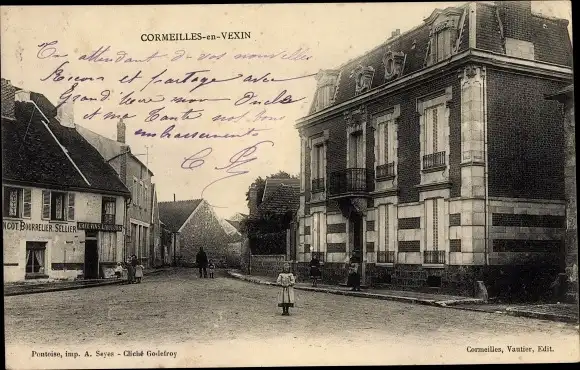 CORMEILLES-EN-VEXIN
En attendant de vos nouvelles
Encore et partage avec
Grand bonne mon Oncle
et ma Tante nos bons
embrassements
COT BOURRELIER SELLIER
Pontoise, imp. A. Seyes - Cliché Godefroy
Cormeilles, Vautier, Edit.